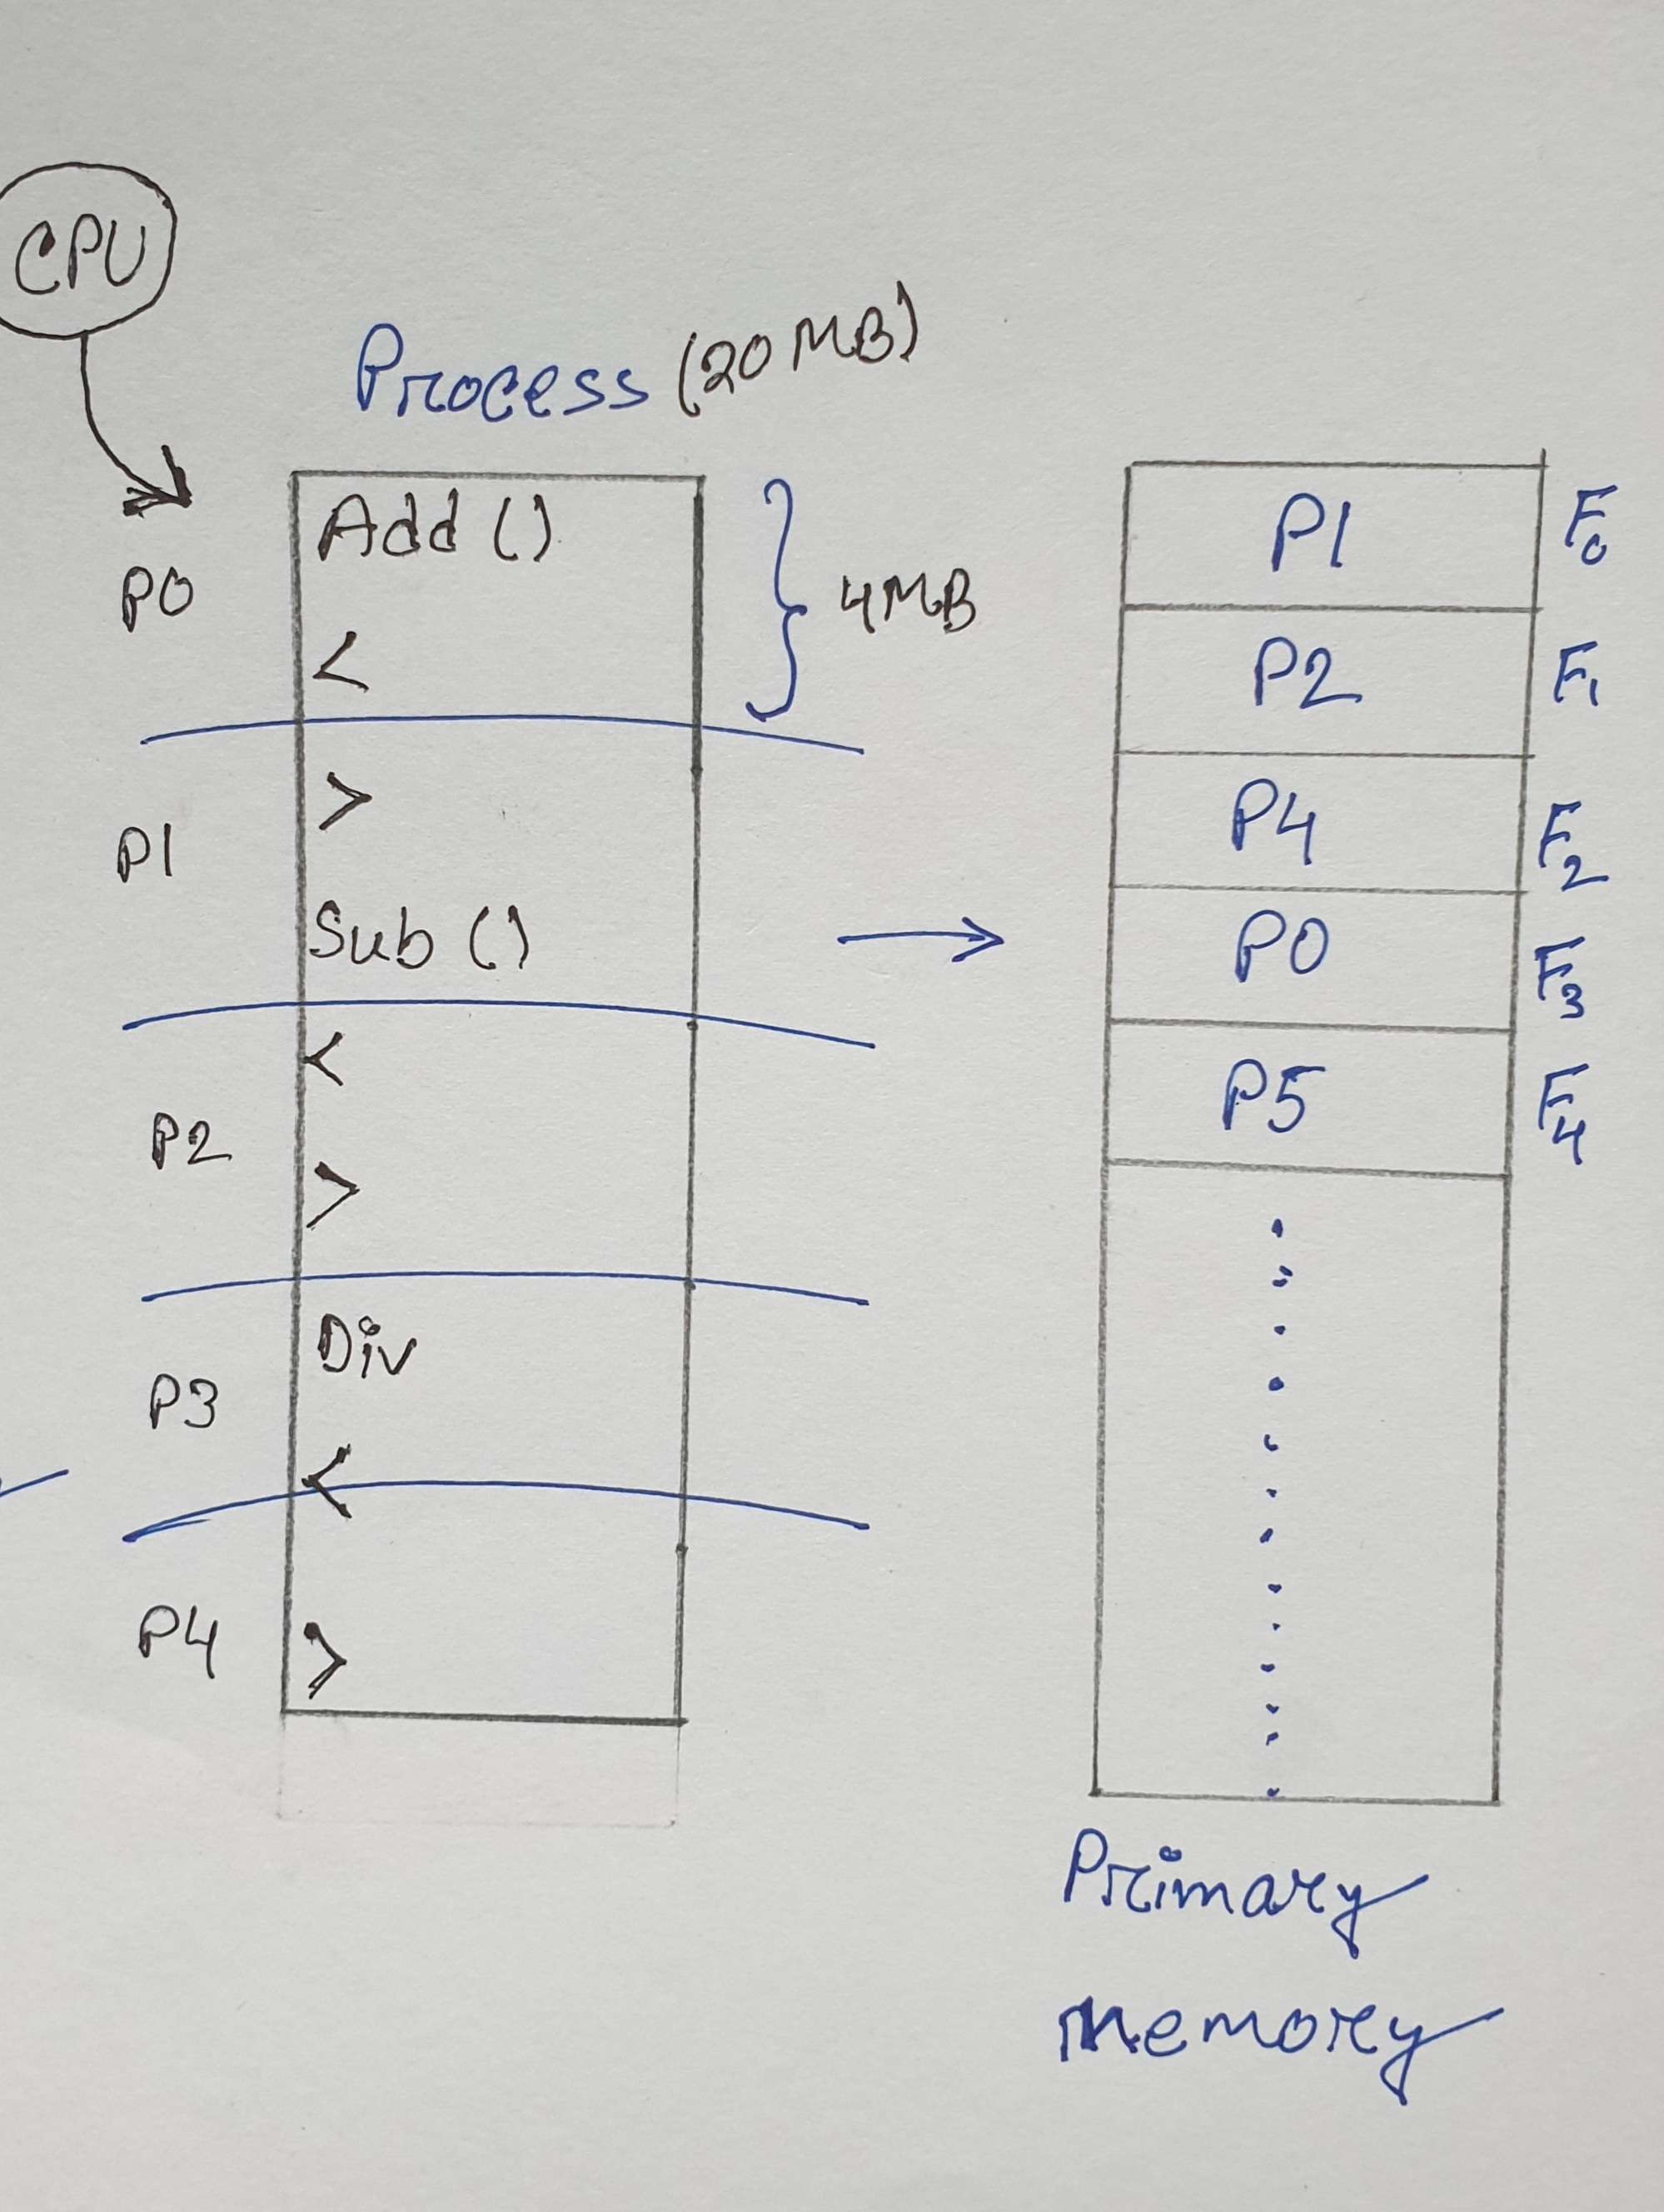 CPU
Process (20 MB)
P0
Add ()
<
4MB
P1
>
Sub ()
P2
<
>
P3
Div
<
P4
>
→
P1 F0
P2 F1
P4 F2
P0 F3
P5 F4
Primary
memory